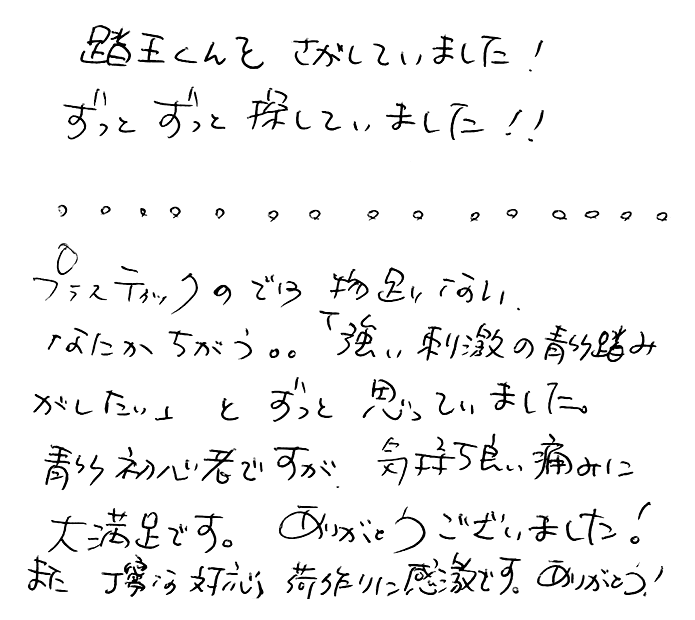 踏王くんを さがしていました!
ずっと ずっと 探していました!!
。。。。。。。。。。。。。。。
プラスティックのでは 物足りない、
なにかちがう。。「強い刺激の青竹踏み
がしたい」 と ずっと 思っていました。
青竹初心者ですが、 気持ち良い痛みに
大満足です。 ありがとうございました!
また 丁寧な対応、荷作りに感激です。ありがとう!